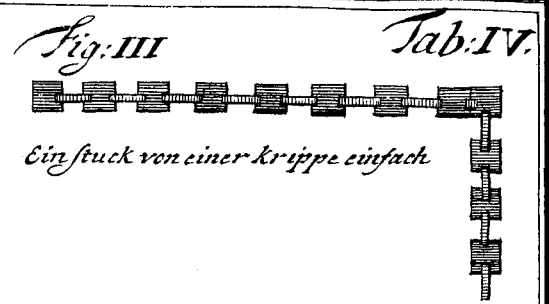 Fig: III
Tab: IV.
Ein stuck von einer krippe einfach